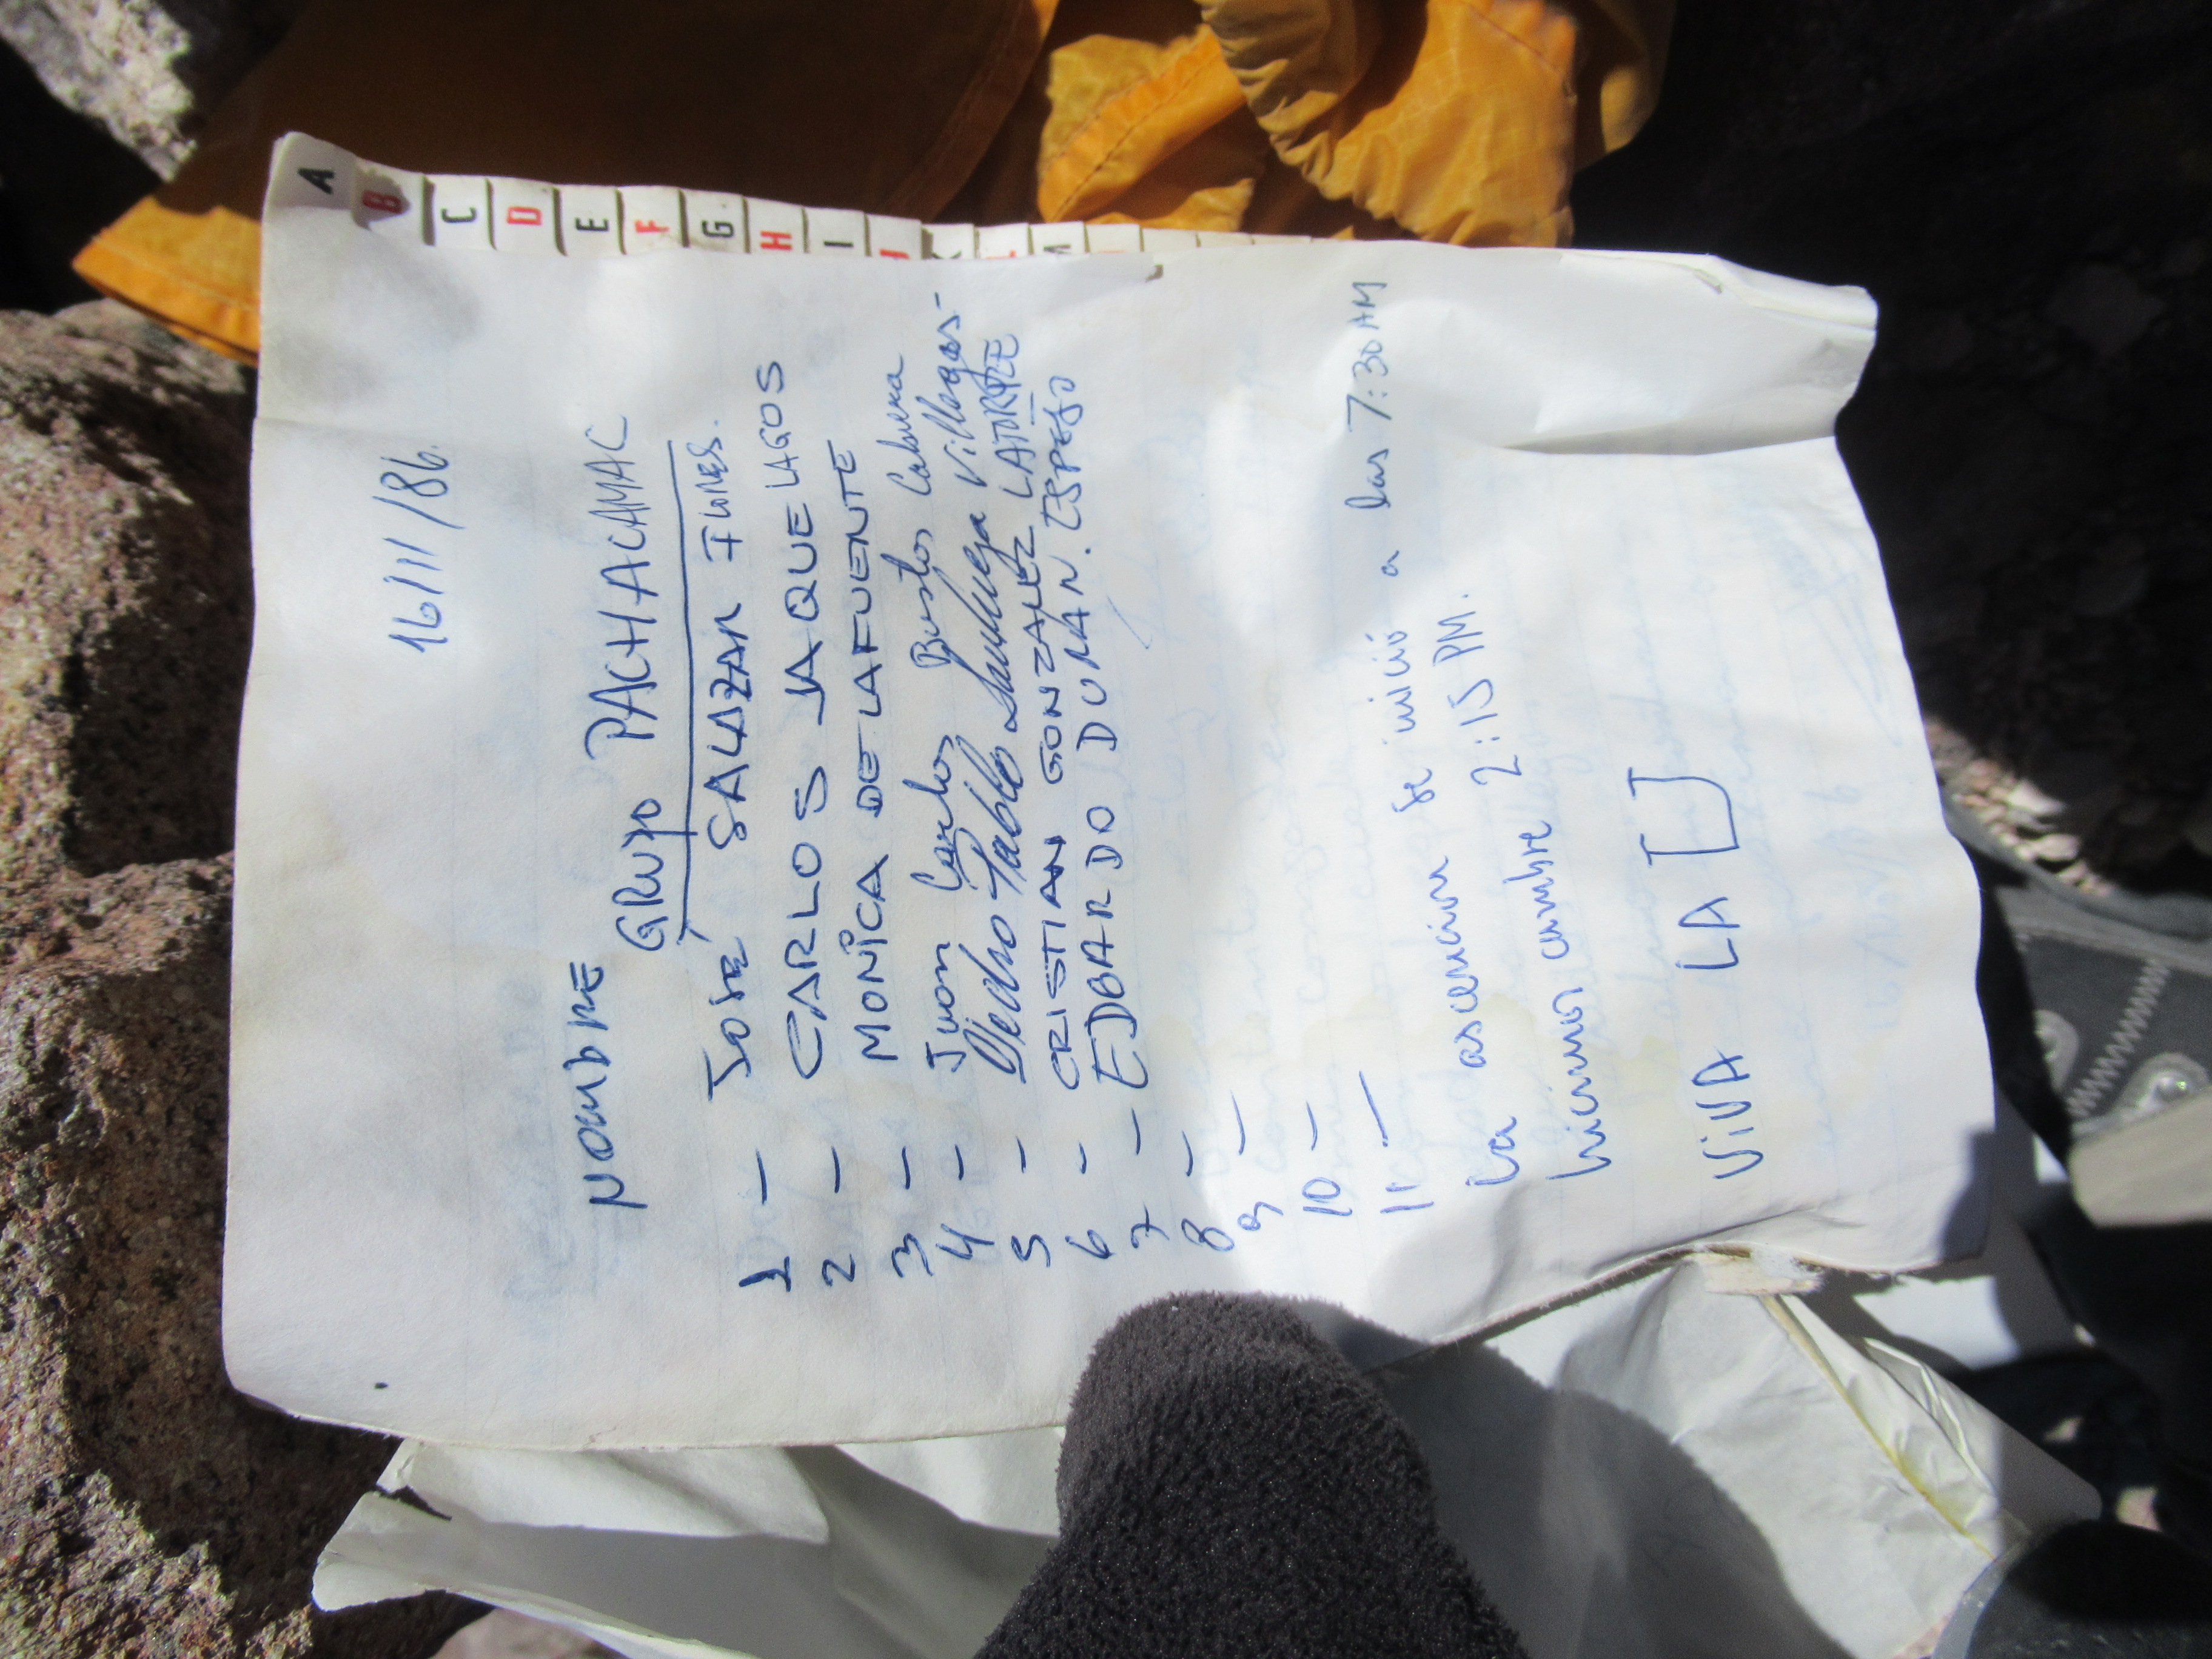 A
B
C
D
E
F
G
H
I
J
K
L
M
16/11/86.
NOMBRE
GRUPO PACHACAMAC
1 - JOSÉ SALAZAR FLORES.
2 - CARLOS JAQUE LAGOS
3 - MONICA DE LAFUENTE
4 - Juan Carlos Bustos Cabrera
5 - Pedro Pablo Sanhueza Villegas-
6 - CRISTIAN GONZALEZ LATORRE
7 - EDBARDO DURAN. ESPEJO
8 -
9 -
10 -
11 -
La ascencion se inició a las 7:30 AM
hicimos cumbre 2:15 PM.
VIVA LA